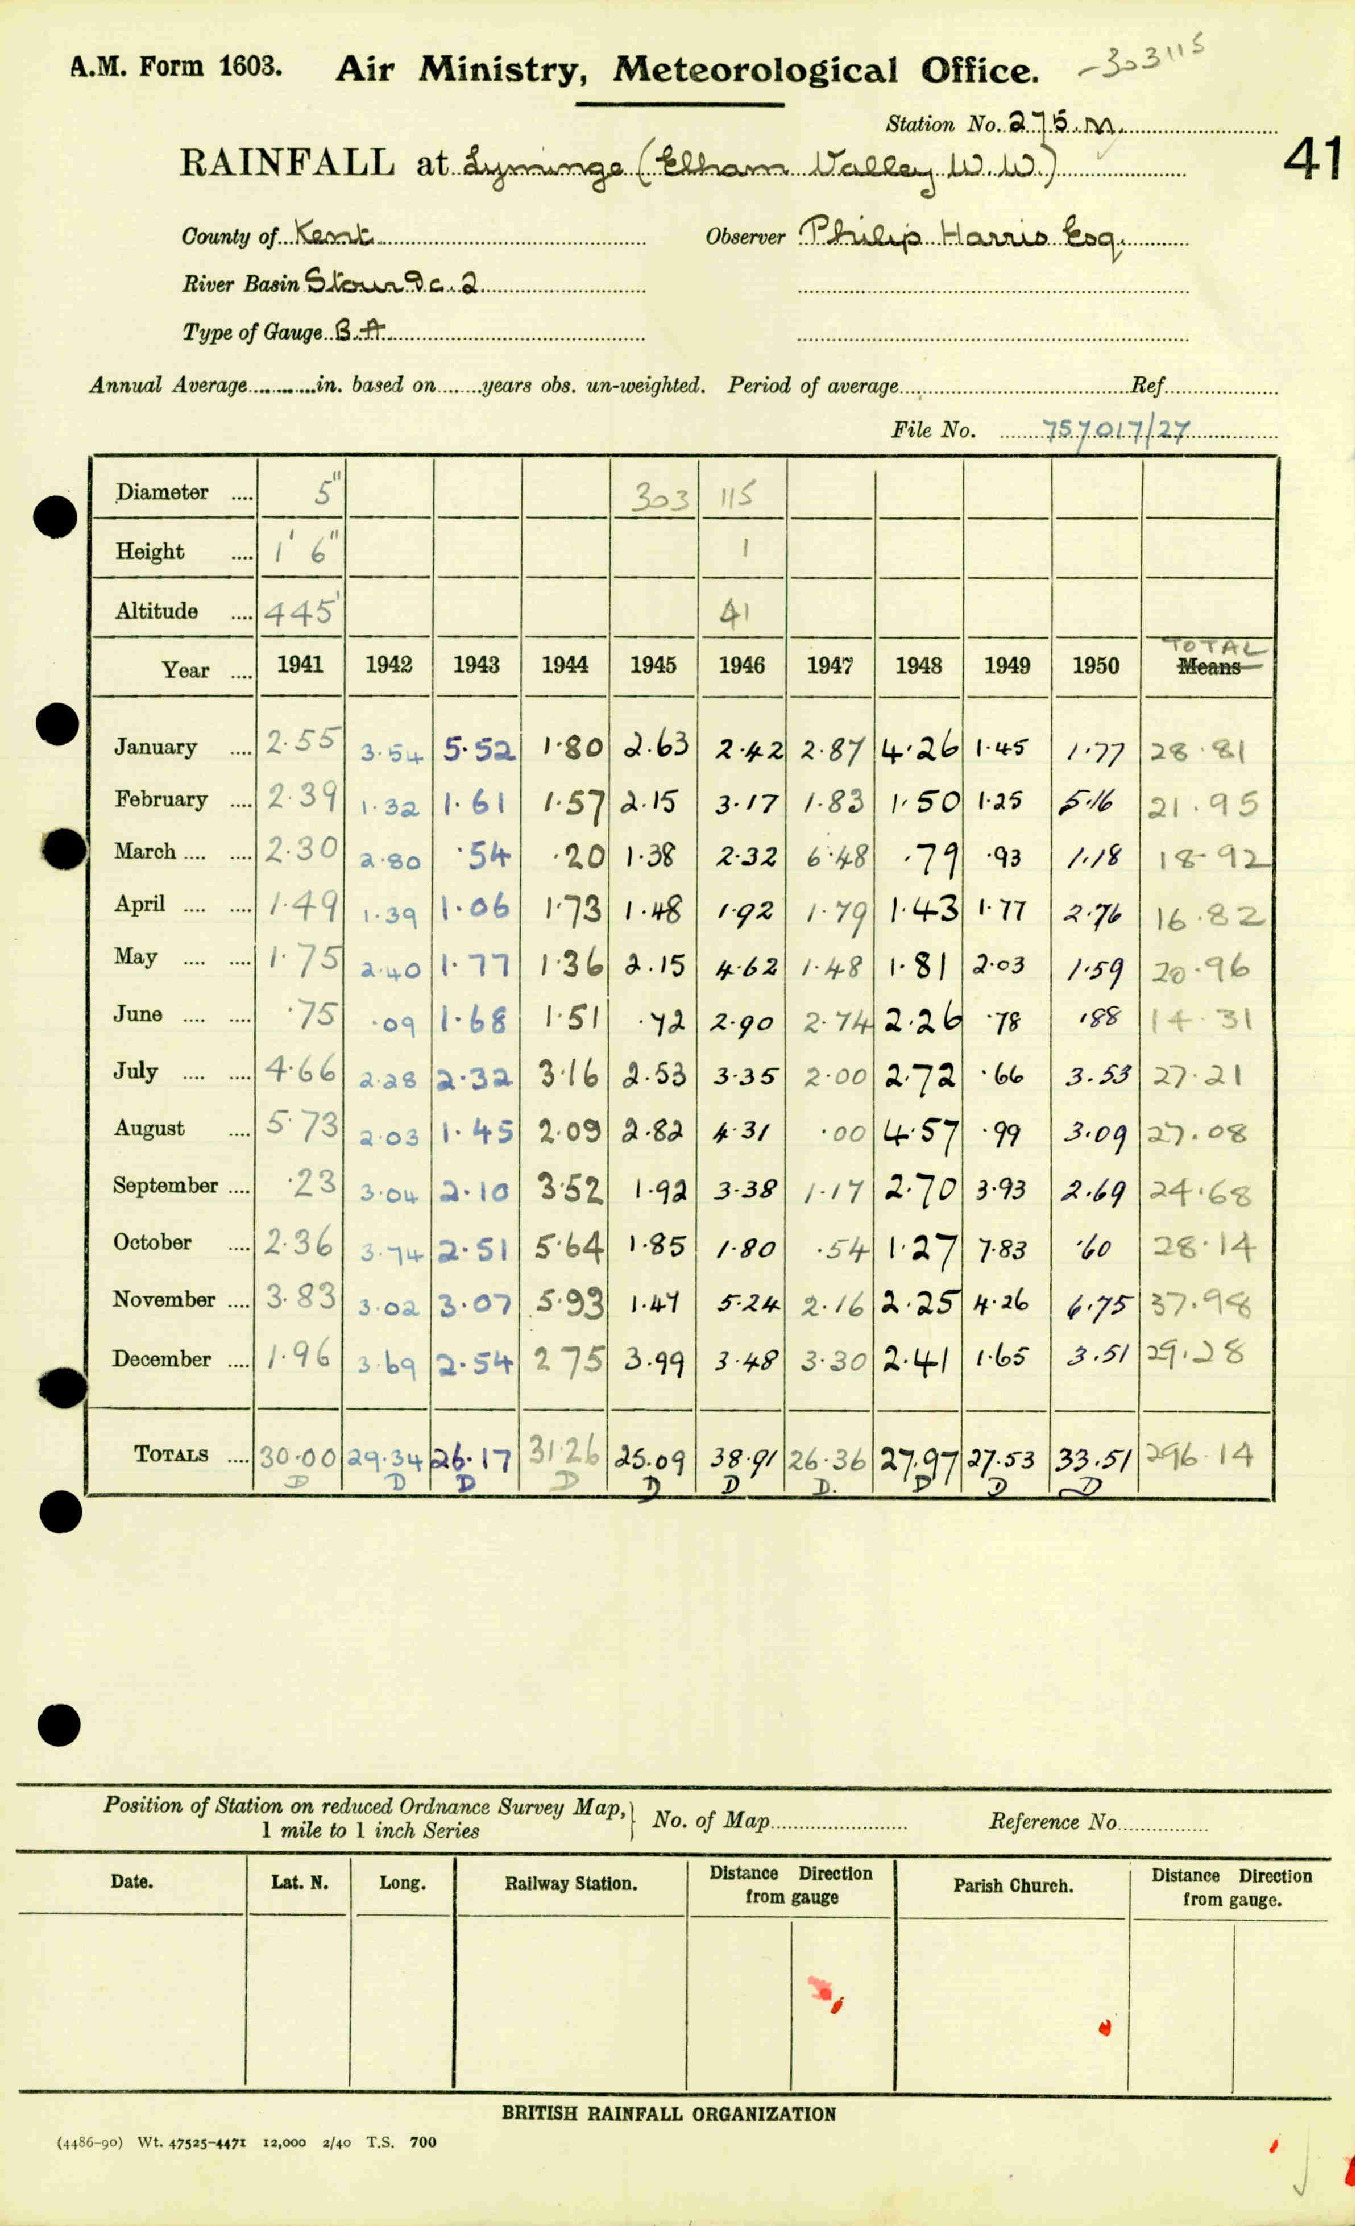 A.M. Form 1603. Air Ministry, Meteorological Office. -303115
Station No. 275.M.
RAINFALL at Lyminge (Elham Valley W.W.) 41
County of Kent Observer Philip Harris Esq.
River Basin Stour &c. 2
Type of Gauge B.A.
Annual Average in. based on years obs. un-weighted. Period of average Ref
File No. 757017/27
Diameter 5" 303 115
Height 1' 6" 1
Altitude 445' 41
TOTAL
Year 1941 1942 1943 1944 1945 1946 1947 1948 1949 1950 Means
January 2.55 3.54 5.52 1.80 2.63 2.42 2.87 4.26 1.45 1.77 28.81
February 2.39 1.32 1.61 1.57 2.15 3.17 1.83 1.50 1.25 5.16 21.95
March 2.30 2.80 .54 .20 1.38 2.32 6.48 .79 .93 1.18 18.92
April 1.49 1.39 1.06 1.73 1.48 1.92 1.79 1.43 1.77 2.76 16.82
May 1.75 2.40 1.77 1.36 2.15 4.62 1.48 1.81 2.03 1.59 20.96
June .75 .09 1.68 1.51 .72 2.90 2.74 2.26 .78 .88 14.31
July 4.66 2.28 2.32 3.16 2.53 3.35 2.00 2.72 .66 3.53 27.21
August 5.73 2.03 1.45 2.09 2.82 4.31 .00 4.57 .99 3.09 27.08
September .23 3.04 2.10 3.52 1.92 3.38 1.17 2.70 3.93 2.69 24.68
October 2.36 3.74 2.51 5.64 1.85 1.80 .54 1.27 7.83 .60 28.14
November 3.83 3.02 3.07 5.93 1.47 5.24 2.16 2.25 4.26 6.75 37.98
December 1.96 3.69 2.54 2 75 3.99 3.48 3.30 2.41 1.65 3.51 29.28
TOTALS 30.00 29.34 26.17 31.26 25.09 38.91 26.36 27.97 27.53 33.51 296.14
D D D D D D D. D D D
Position of Station on reduced Ordnance Survey Map,
1 mile to 1 inch Series
No. of Map Reference No
Date. Lat. N. Long. Railway Station. Distance Direction from gauge Parish Church. Distance Direction from gauge.
BRITISH RAINFALL ORGANIZATION
(4486-90) Wt. 47525-4471 12,000 2/40 T.S. 700